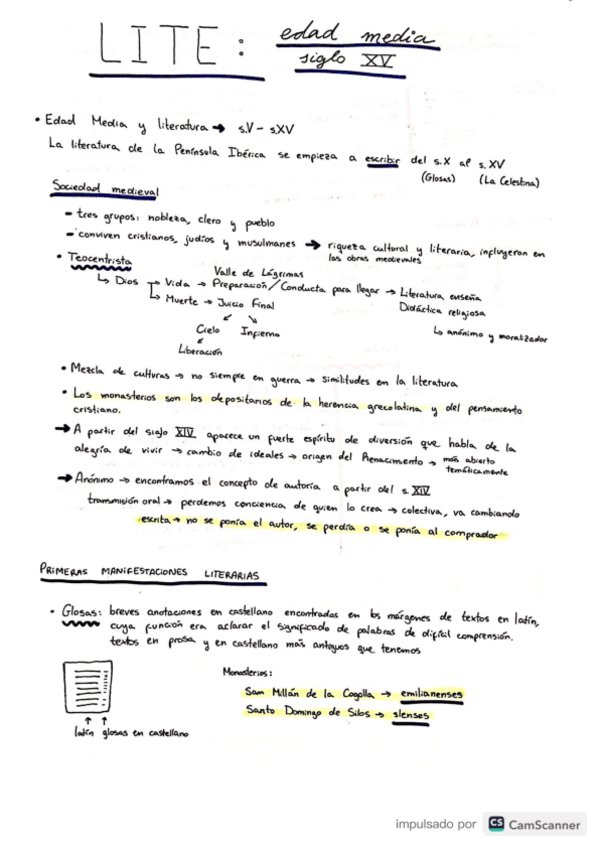 LITE: edad media
siglo XV
• Edad Media y literatura → s.V - s.XV
La literatura de la Península Ibérica se empieza a escribir del s.X al s.XV
(Glosas) (La Celestina)
Sociedad medieval
- tres grupos: nobleza, clero y pueblo
- conviven cristianos, judíos y musulmanes → riqueza cultural y literaria, influyeron en
las obras medievales
• Teocentrista
Valle de Lágrimas
↳ Dios → Vida → Preparación/Conducta para llegar → Literatura enseña
Didáctica religiosa
↳ Muerte → Juicio Final
↳ anónimo y moralizador
Cielo Infierno
Liberación
• Mezcla de culturas → no siempre en guerra → similitudes en la literatura
• Los monasterios son los depositarios de la herencia grecolatina y del pensamiento
cristiano.
→ A partir del siglo XIV aparece un fuerte espíritu de diversión que habla de la
alegría de vivir → cambio de ideales → origen del Renacimiento → más abierto
temáticamente
→ Anónimo → encontramos el concepto de autoría a partir del s. XIV
transmisión oral → perdemos conciencia de quien lo crea → colectiva, va cambiando
escrita → no se ponía el autor, se perdía o se ponía al comprador
PRIMERAS MANIFESTACIONES LITERARIAS
• Glosas: breves anotaciones en castellano encontradas en los márgenes de textos en latín,
cuya función era aclarar el significado de palabras de difícil comprensión.
textos en prosa y en castellano más antiguos que tenemos
Monasterios:
San Millán de la Cogolla → emilianenses
Santo Domingo de Silos → silenses
latín glosas en castellano
impulsado por CS CamScanner